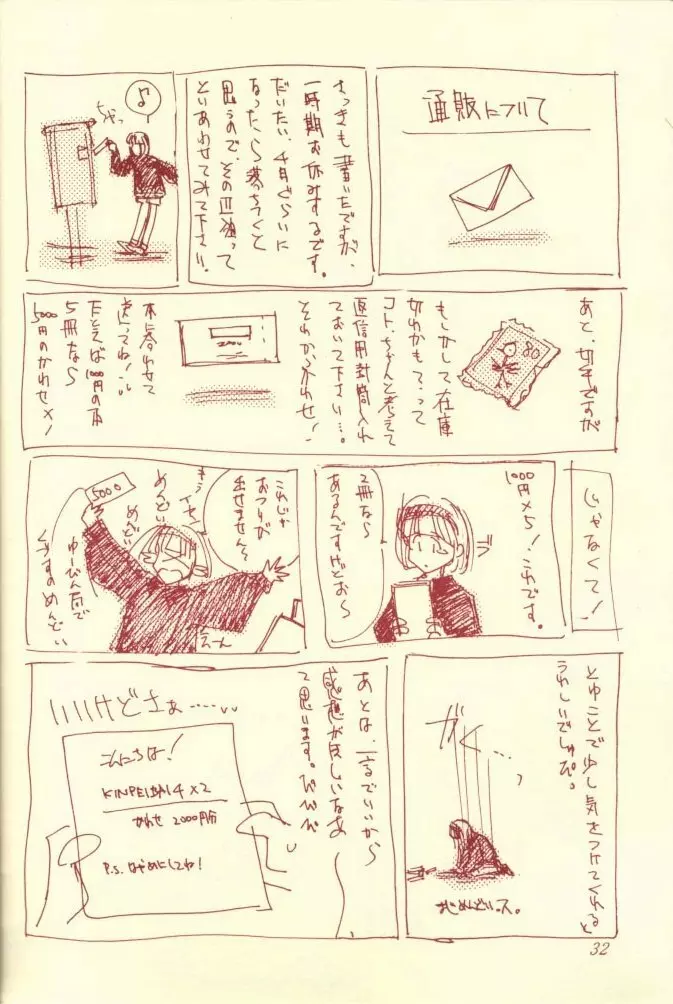 通販について
さっきも書いたですが、
一時期お休みするです。
だいたい、4月ぐらいに
なったら落ちつくと
思うので、その辺狙って
といあわせてみて下さい。
♪
ちゃっ
あと、切手ですが
80
もしかして在庫
切れかもって
コト、ちゃんと考えて
返信用封筒入れ
ておいて下さい…。
それから、かわせ!
本に合わせて
送ってね!
たとえば1000円の本
5冊なら
5000円のかわせ×!
じゃなくて!
1000円×5!これです。
2冊なら
あるんですけどお〜
これじゃ
おつりが
出せません〜
5000
めんどい
めんどい
ゆーびん局で
くずすのめんどい
とゆことで少し気をつけてくれると
うれしいでしゅぴ。
がくー…
あとは、一言でいいから
感想が欲しいなあ
て思います。ぴぴぴ
いいけどさぁ……
こんにちは!
かわせ 2000円分
P.S. はやめにしてね!
32